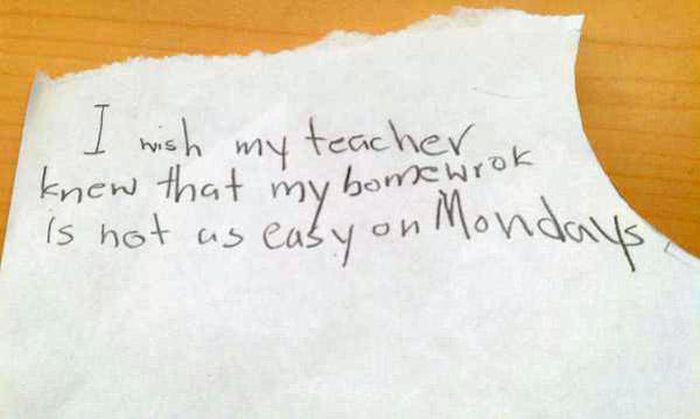 I wish my teacher
knew that my homewrok
is not as easy on Mondays